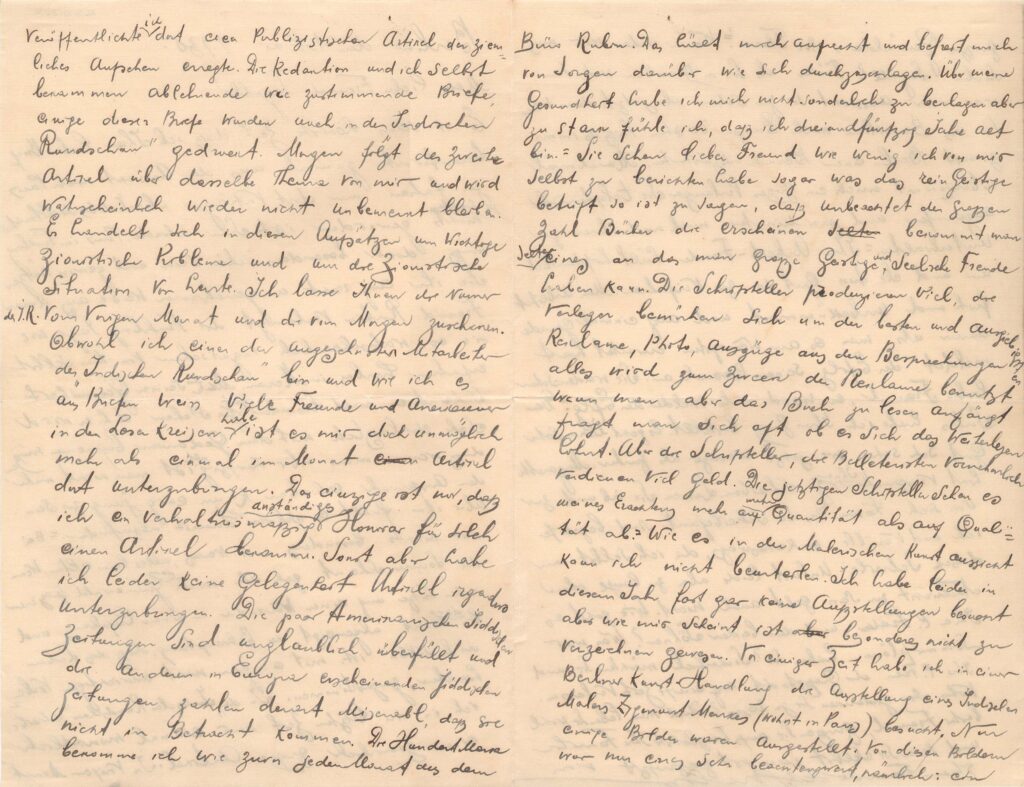 Veröffentlichte ich dort einen Publizistischen Artikel der ziem-
liches Aufsehen erregte. Die Redaktion und ich selbst
bekammen ablehnende wie zustimmende Briefe,
einige dieser Briefe wurden auch in der „Jüdischen
Rundschau" gedruckt. Morgen folgt der zweite
Artikel über dasselbe Thema von mir und wird
wahrscheinlich wieder nicht unbemerkt bleiben.
Es handelt sich in diesen Aufsätzen um wichtige
Zionistische Probleme und um die Zionistische
Situation von heute. Ich lasse Ihnen die Numer
der J.R. vom Vorigen Monat und die vom Morgen zuschicken.
Obwohl ich einer der angesehensten Mitarbeiter
der „Jüdischen Rundschau" bin und wie ich es
aus Briefen weiss viele Freunde und
in den Leser Kreisen habe ist es mir doch unmöglich
mehr als einmal im Monat einen Artikel
dort unterzubringen. Das einzige ist nur, daß
ich ein verhältnismässig anständiges Honorar für solch
einen Artikel bekomme. Sonst aber habe
ich leider keine Gelegenheit Artikel irgendwo
unterzubringen. Die paar Amerikanischen Jiddischen
Zeitungen sind unglaublich überfüllt und
die Anderen in Europa erscheinenden Jiddischen
Zeitungen zahlen derart Miserabl, dass sie
nicht in Betracht kommen. Die Hundert Mark
bekomme ich wie zuvor jeden Monat aus dem
Büro Ruben. Das hält mich aufrecht und befreit mich
von Sorgen darüber wie sich durchzuschlagen. Über meine
Gesundheit habe ich mich nicht sonderlich zu beklagen aber
zu stark fühle ich, daß ich dreiundfünfzig Jahre alt
bin.= Sie sehen lieber Freund wie wenig ich von mir
selbst zu berichten habe sogar was das rein Geistige
betrift so ist zu sagen, daß unbeachtet der großen
Zahl Bücher die erscheinen selten bekommt man
selten eines an das man große Geistige und Seelische Freude
haben kann. Die Schriftsteller produzieren viel, die
Verleger bemühen sich um den besten und
Reklame, Photo, Auszüge aus den Besprechungen
alles wird zum Zwecken der Reklame benutzt
wann man aber das Buch zu lesen anfängt
fragt man sich oft ob es sich das Weiterlesen
lohnt. Aber die Schriftsteller, die Belletristen Vornehmlich
verdienen viel Geld. Die jetztigen Schriftsteller sehen es
meines Erachtens mehr auf Quantität als auf Quali-
tät ab.= Wie es in der Malerischen Kunst aussieht
kann ich nicht beurteilen. Ich habe leider in
diesem Jahr fast gar keine Ausstellungen besucht
aber wie mir scheint ist aber besonderes nicht zu
verzeichnen gewesen. Vor einiger Zeit habe ich in einer
Berliner Kunst-Handlung die Ausstellung eines Jüdischen
Malers Zygmunt Menkes (wohnt in Paris) besucht. Nur
einige Bilder waren Ausgestellt. Von diesen Bildern
war nur eines sehr beachtenswert, nämlich: ein